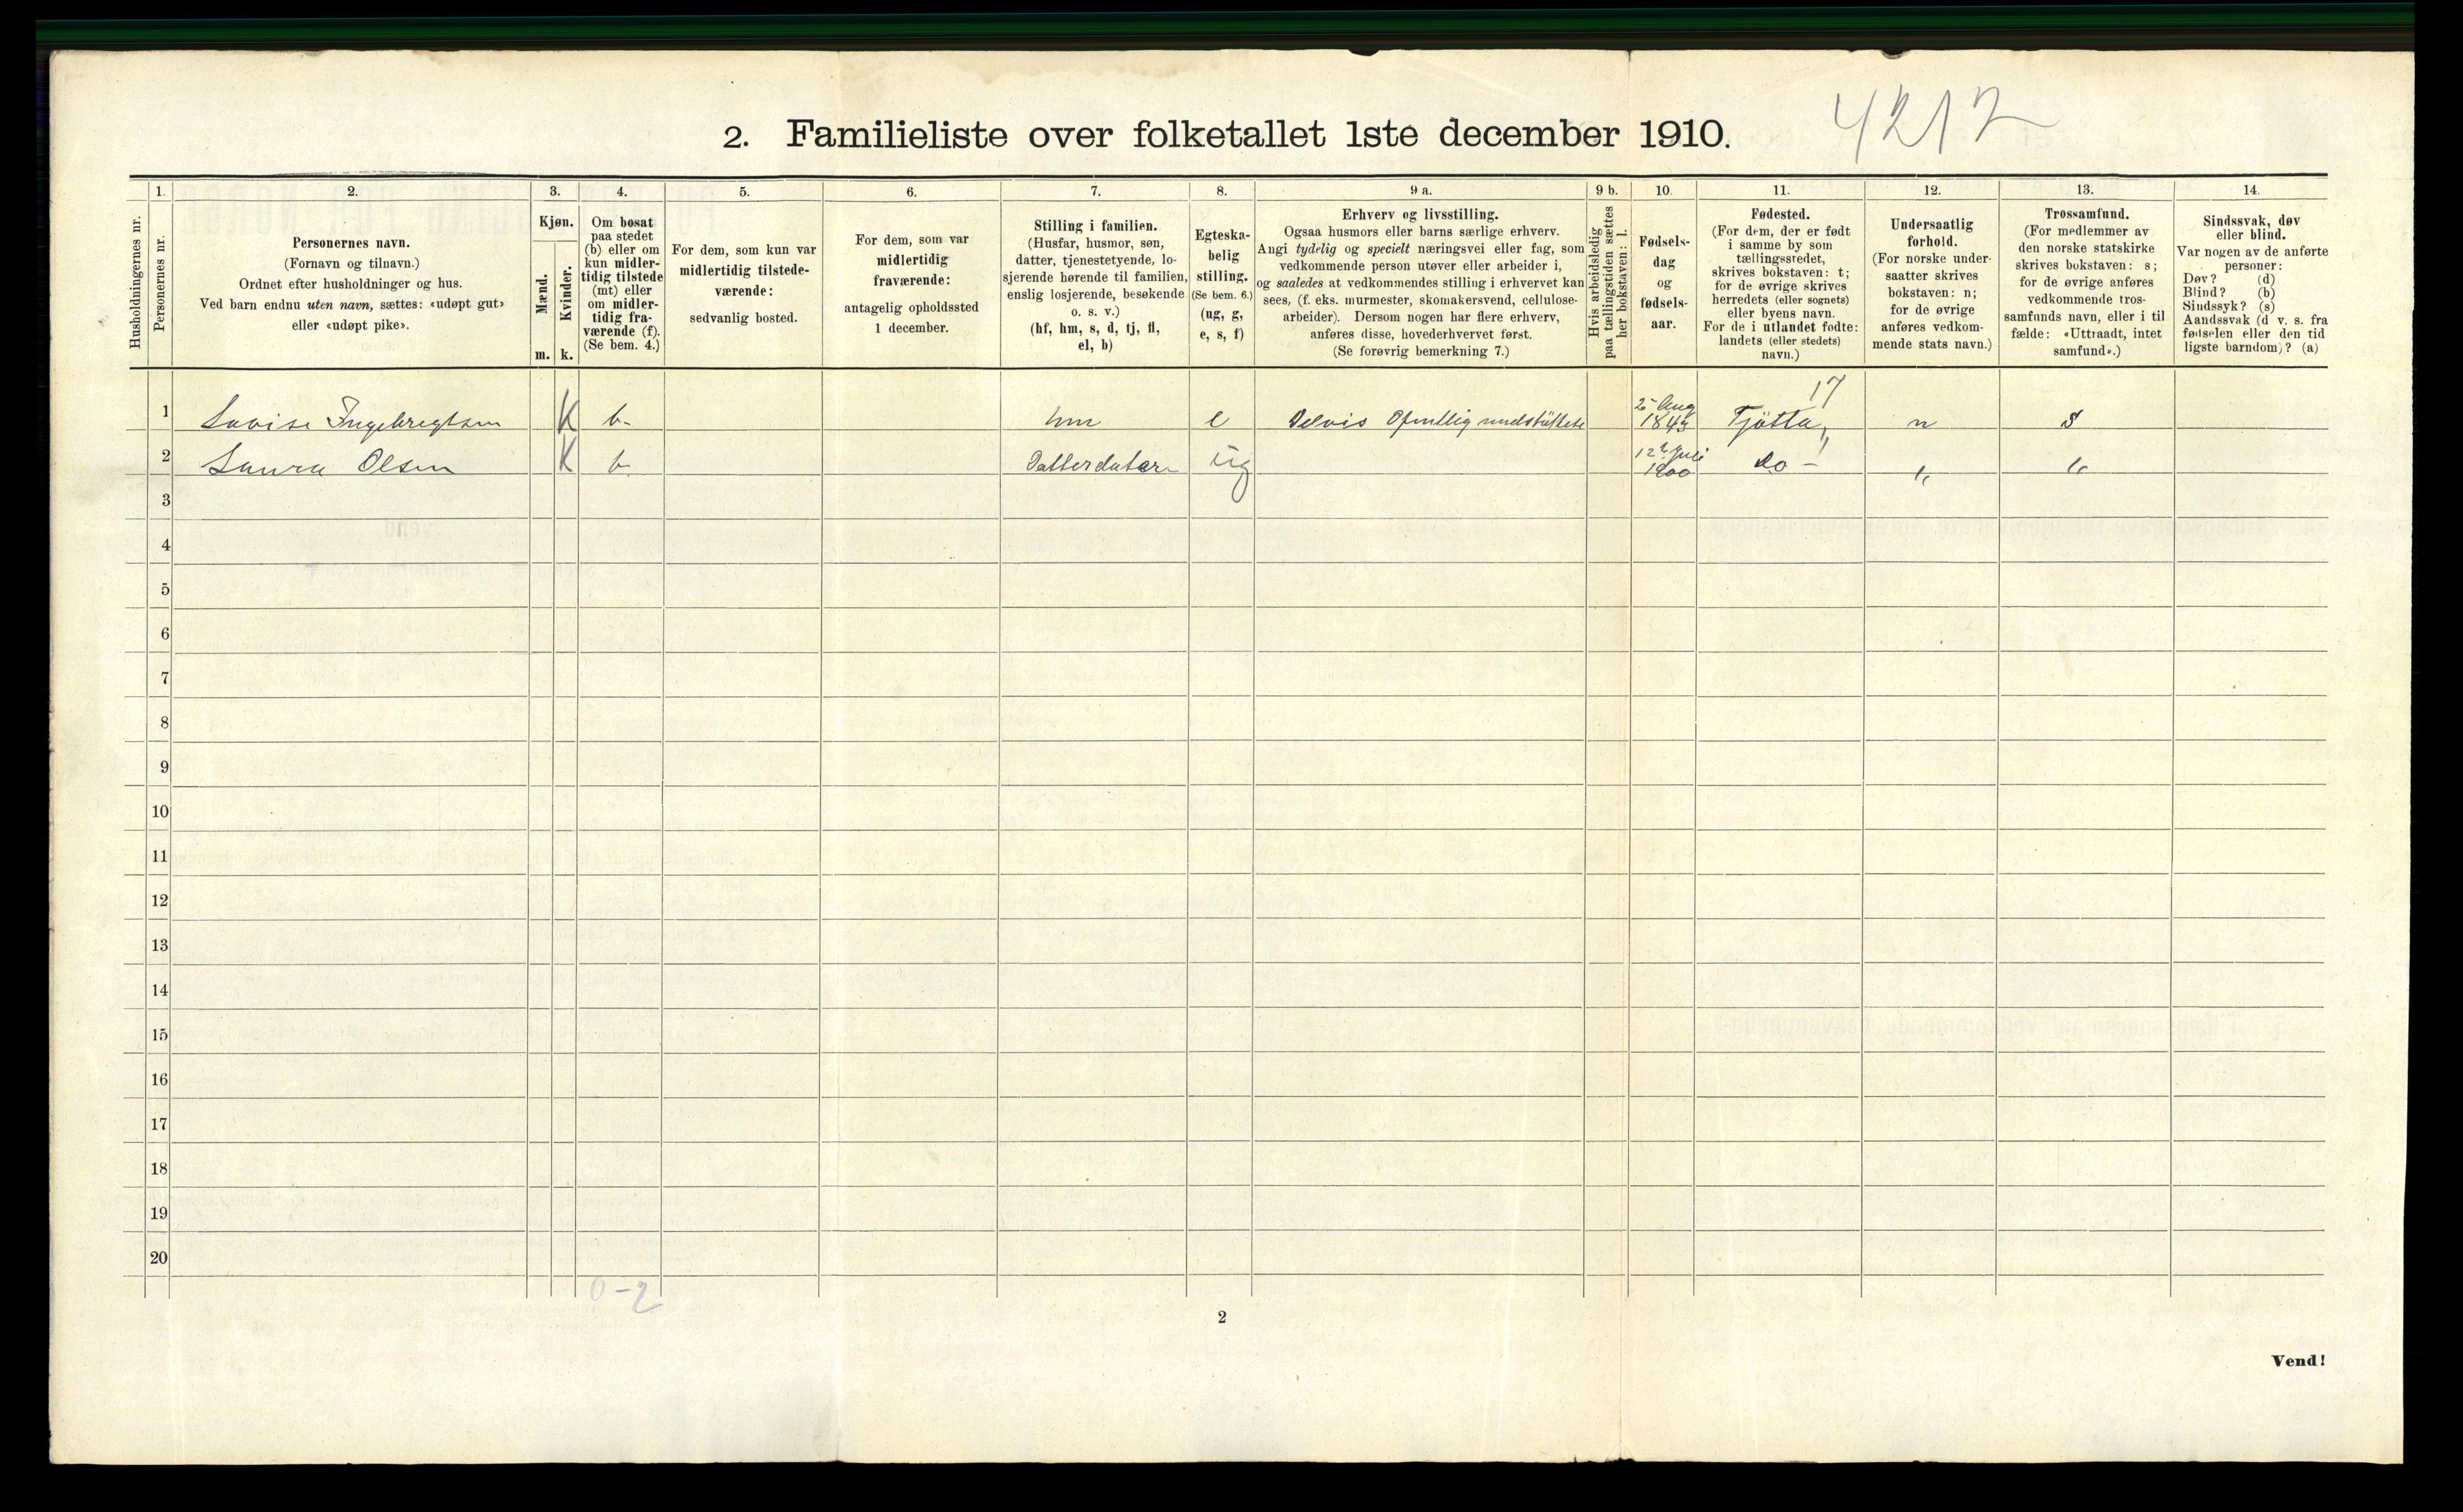 2. Familieliste over folketallet 1ste december 1910.
4212
1.
2.
3.
4.
5.
6.
7.
8.
9 a.
9 b.
10.
11.
12.
13.
14.
Husholdningernes nr.
Personernes nr.
Personernes navn.
(Fornavn og tilnavn.)
Ordnet efter husholdninger og hus.
Ved barn endnu uten navn, sættes: «udøpt gut»
eller «udøpt pike».
Kjøn.
Mænd.
Kvinder.
m.
k.
Om bosat
paa stedet
(b) eller om
kun midler-
tidig tilstede
(mt) eller
om midler-
tidig fra-
værende (f).
(Se bem. 4.)
For dem, som kun var
midlertidig tilstede-
værende:
sedvanlig bosted.
For dem, som var
midlertidig
fraværende:
antagelig opholdssted
1 december.
Stilling i familien.
(Husfar, husmor, søn,
datter, tjenestetyende, lo-
sjerende hørende til familien,
enslig losjerende, besøkende
o. s. v.)
(hf, hm, s, d, tj, fl,
el, b)
Egteska-
belig
stilling.
(Se bem. 6.)
(ug, g,
e, s, f)
Erhverv og livsstilling.
Ogsaa husmors eller barns særlige erhverv.
Angi tydelig og specielt næringsvei eller fag, som
vedkommende person utøver eller arbeider i,
og saaledes at vedkommendes stilling i erhvervet kan
sees, (f. eks. murmester, skomakersvend, cellulose-
arbeider). Dersom nogen har flere erhverv,
anføres disse, hovederhvervet først.
(Se forøvrig bemerkning 7.)
Hvis arbeidsledig
paa tællingstiden sættes
her bokstaven: l.
Fødsels-
dag
og
fødsels-
aar.
Fødested.
(For dem, der er født
i samme by som
tællingsstedet,
skrives bokstaven: t;
for de øvrige skrives
herredets (eller sognets)
eller byens navn.
For de i utlandet fødte:
landets (eller stedets)
navn.)
Undersaatlig
forhold.
(For norske under-
saatter skrives
bokstaven: n;
for de øvrige
anføres vedkom-
mende stats navn.)
Trossamfund.
(For medlemmer av
den norske statskirke
skrives bokstaven: s;
for de øvrige anføres
vedkommende tros-
samfunds navn, eller i til
fælde: «Uttraadt, intet
samfund».)
Sindssvak, døv
eller blind.
Var nogen av de anførte
personer:
Døv? (d)
Blind? (b)
Sindssyk? (s)
Aandssvak (d v. s. fra
fødselen eller den tid
ligste barndom)? (a)
17
1 Lovise Ingebregtsen K b. hm e Delvis Ofentlig understüttete Aug 1843 Tjötta n S
2 Laura Olsen K b. Datterdater ug 12 Juli 1900 do - „ „
3
4
5
6
7
8
9
10
11
12
13
14
15
16
17
18
19
20
0-2
2
Vend!